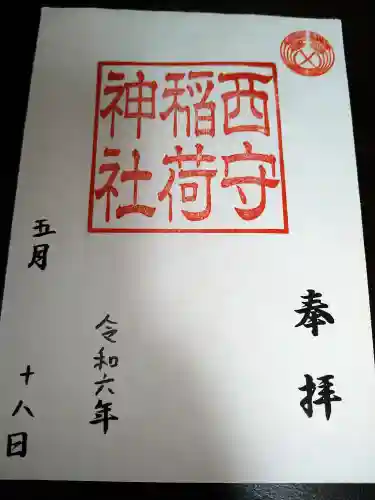 奉拝
西守
稲荷
神社
令和六年
五月十八日